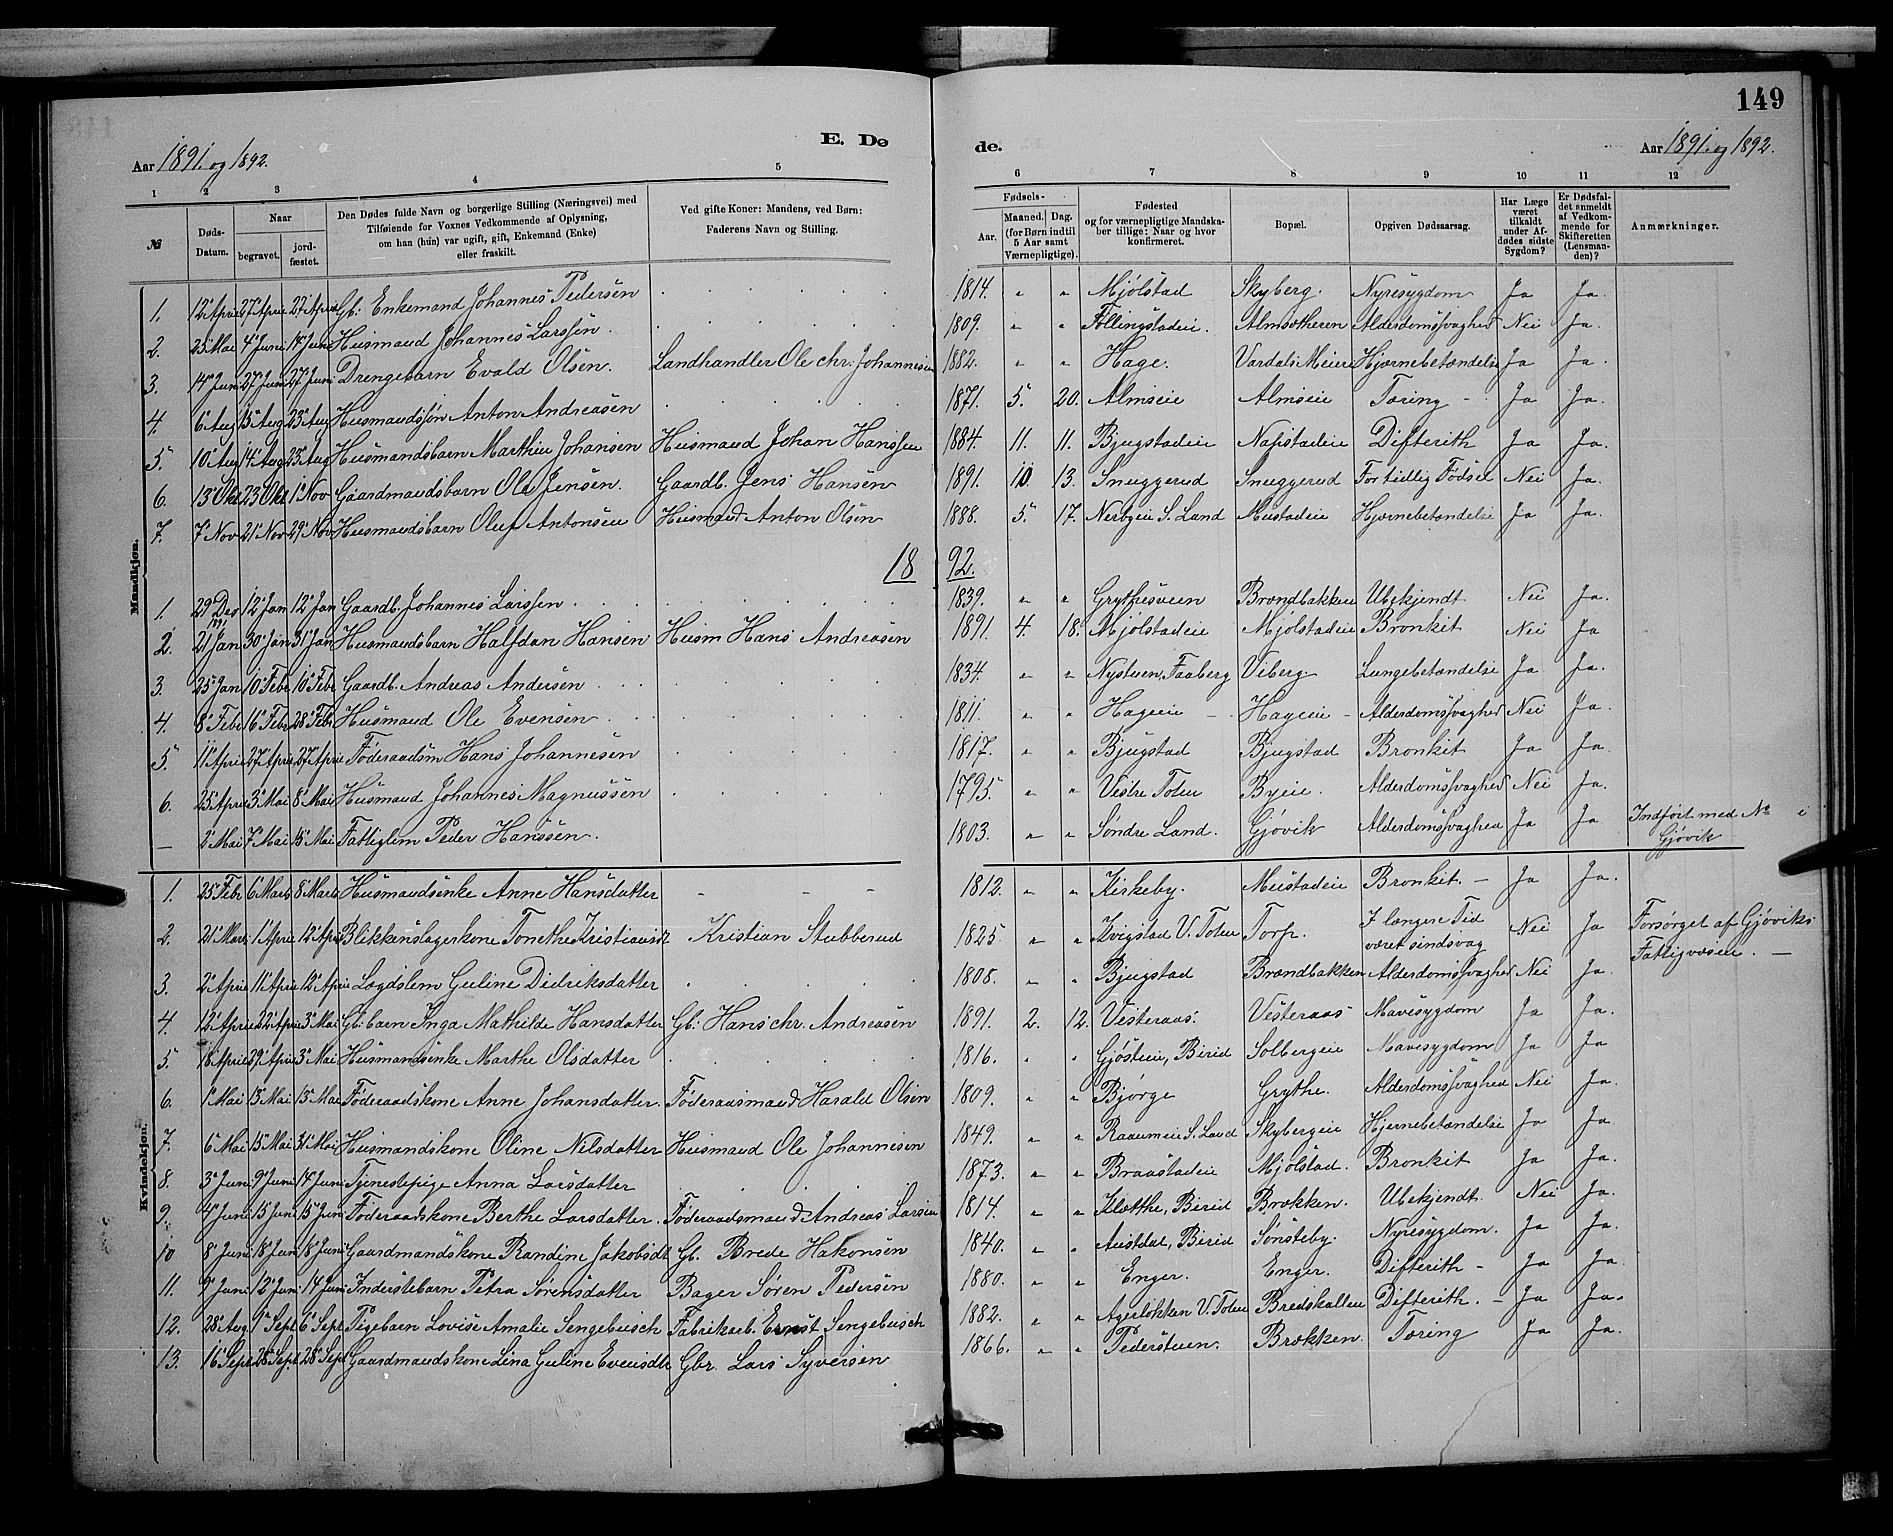 149
E. Dø
de.
Aar 1891. og 1892.
Aar 1891. og 1892.
1 2 3 4 5 6 7 8 9 10 11 12
№
Døds-Datum.
Naar
begravet.
jordfæstet.
Den Dødes fulde Navn og borgerlige Stilling (Næringsvei) med
Tilføiende for Voxnes Vedkommende af Oplysning,
om han (hún) var ugift, gift, Enkemand (Enke)
eller fraskilt.
Ved gifte Koner: Mandens, ved Børn:
Faderens Navn og Stilling.
Fødsels-
Aar.
Maaned. Dag.
(for Børn indtil
5 Aar samt
Værnepligtige).
Fødested
og for værnepligtige Mandska-
ber tillige: Naar og hvor
konfirmeret.
Bopæl.
Opgiven Dødsaarsag.
Har Læge
været
tilkaldt
under Af-
dødes sidste
Sygdom?
Er Dødsfal-
det anmeldt
af Vedkom-
mende for
Skifteretten
(Lensman-
den)?
Anmærkninger.
Mandkjøn.
1. 12' April 27' April 27' April Gb: Enkemand Johannes Pedersen 1814. " " Mjølstad Skyberg. Nyresygdom Ja Ja.
2. 25' Mai 4' Juni 14' Juni Husmand Johannes Larssen. 1809. " " Føllingstadeie. Almsætheren Alderdomssvaghed Nei Ja.
3. 14' Juni 27' Juni 27' Juni Drengebarn Evald Olsen. Landhandler Ole Chr. Johannesen 1882. " " Hage. Vardals Meieri Hjærnebetændelse Ja Ja.
4. 6' Aug 15' Aug 23' Aug Husmandssøn Anton Andreasen 1871. 5. 20. Almseie Almseie Tæring - Ja Ja.
5. 10' Aug 14' Aug 23' Aug Husmandsbarn Marthin Johansen Husmand Johan Hanssen 1884. 11. 11. Bjugstadeie Næpstadeie Difterith Ja Ja.
6. 13' Okt 23' Okt 1' Nov Gaardmandsbarn Ole Jensen. Gaardb. Jens Hansen 1891. 10 13. Snuggerud Snuggerud For tidlig Fødsel Nei Ja.
7. 7' Nov 21' Nov 29' Nov Husmandsbarn Oluf Antonsen Husmand Anton Olsen 1888. 5. 17. Nerbyeie S. Land Mustadeie Hjærnebetændelse Ja Ja.
18 92.
1. 29' Des 1891 12' Jan 12' Jan Gaardb. Johannes Larssen. 1839. " " Grythesveen Brændbakken Ubekjendt Nei Ja.
2. 21' Jan 30' Jan 31' Jan Husmandsbarn Halfdan Hansen Husm Hans Andreasen 1891. 4. 18. Mjølstadeie Mjølstadeie Bronkit Nei Ja.
3. 25' Jan 10' Febr 10' Febr Gaardb. Andreas Andersen 1834. " " Nystuen, Faaberg Viberg Lungebetændelse Ja Ja.
4. 8' Febr 16' Febr 28' Febr Husmand Ole Evensen 1811. " " Hageeie - Hageeie - Alderdomssvaghed Nei Ja.
5. 11' April 27' April 27' April Føderaadsm Hans Johannesen 1817. " " Bjugstad Bjugstad Bronkit Ja Ja.
6. 25' April 3' Mai 8' Mai Husmand Johannes Magnussen 1795. " " Vestre Toten Byeie. Alderdomssvaghed Nei Ja.
— 2' Mai 7' Mai 15' Mai Fattiglem Peder Hanssen. 1803. " " Søndre Land. Gjøvik Alderdomssvaghed Ja Ja Indført med № i
Gjøvik
Kvindekjøn.
1. 25' Febr 6' Marts 8' Marts Husmandsenke Anne Hansdatter - - - 1812. " " Kirkeby. Mustadeie Bronkit. - Ja Ja.
2. 21' Marts 1' April 12' April Blikkenslagerkone Tonethe Kristiansdt Kristian Stubberud 1825 " " Kvigstad V. Toten Torp. I længere Tid været sindsvag Nei Ja Forsørget af Gjøviks
Fattigvæsen. —
3. 2' April 11' April 12' April Lægdslem Guline Didriksdatter 1808. " " Bjugstad Brændbakken Alderdomssvaghed Nei Ja.
4. 12' April 22' April 3' Mai Gb: barn Inga Mathilde Hansdatter Gb: Hans Chr. Andreasen 1891. 2. 12. Vesteraas. Vesteraas Mavesygdom Ja Ja.
5. 18' April 29' April 3' Mai Husmandsenke Marthe Olsdatter 1816. " " Gjøsteie, Birid Solbergeie Mavesygdom Ja Ja
6. 1' Mai 13' Mai 15' Mai Føderaadskone Anne Johansdatter. Føderaasmand Harald Olsen 1809. " " Bjørge Grythe. Alderdomssvaghed Nei Ja.
7. 6' Mai 15' Mai 31' Mai Husmandskone Oline Nilsdatter Husmand Ole Johannesen 1849. " " Raaumeie S. Land Skybergeie Hjernebetændelse Ja Ja
8. 3' Juni 9' Juni 14' Juni Tjenestepige Anna Larsdatter 1873. " " Braastadeie Mjølstad. Bronkit Ja Ja.
9. 4' Juni 15' Juni 15' Juni Føderaadskone Berthe Larsdatter. Føderaadsmand Andreas Larsen 1814. " " Klætthe, Birid Brækken. Ubekjendt. Nei Ja.
10 8' Juni 18' Juni 18' Juni Gaardmandskone Randine Jakobsdt Gb. Brede Hakonsen 1840. " " Austdal, Birid Sønsteby. Nyresygdom. Ja Ja
11. 9' Juni 12' Juni 14' Juni Inderstebarn Petra Sørensdatter Bager Søren Pedersen 1880. " " Enger. Enger. Difterith - Ja Ja.
12. 28' Aug 1' Sept 6' Sept Pigebarn Lovise Amalie Sengebusch Fabrikarb. Ernst Sengebusch 1882. " " Ageløkken V. Toten Bredskallen Difterith. - Ja Ja.
13. 16' Sept 28' Sept 28' Sept Gaardmandskone Lina Guline Evensdtr Gbr. Lars Syversen 1866. " " Pederstuen. Brækken. Tæring Ja Ja.